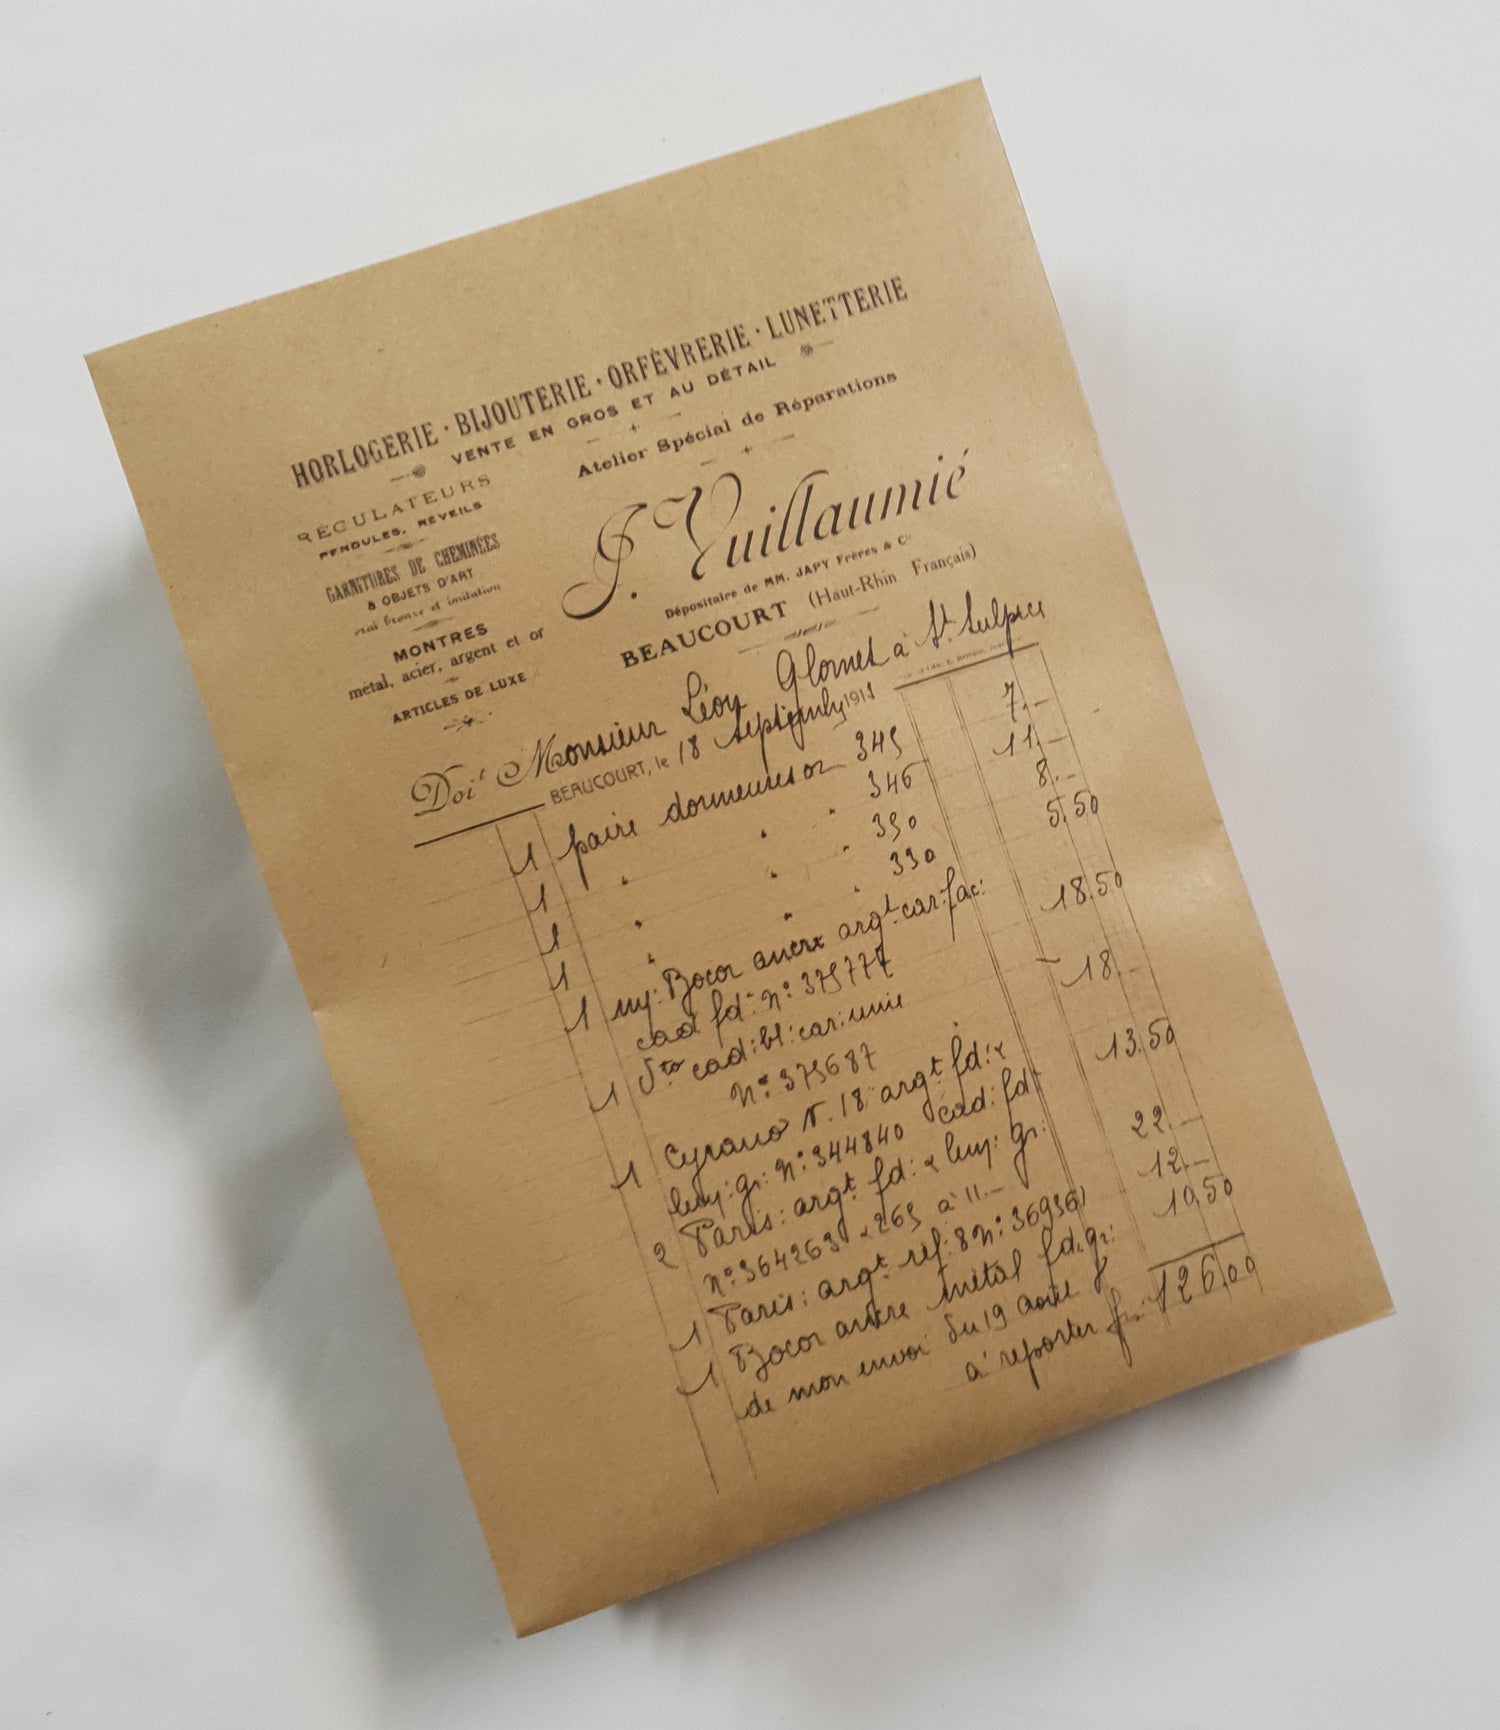 HORLOGERIE · BIJOUTERIE · ORFÈVRERIE · LUNETTERIE
VENTE EN GROS ET AU DÉTAIL
Atelier Spécial de Réparations
RÉGULATEURS
PENDULES, RÉVEILS
GARNITURES DE CHEMINÉES
& OBJETS D'ART
vrai bronze et imitation
MONTRES
métal, acier, argent et or
ARTICLES DE LUXE
J. Vuillaumié
Dépositaire de MM. JAPY Frères & Cie
BEAUCOURT (Haut-Rhin Français)
Doit Monsieur Léon à St. Sulpice
BEAUCOURT, le 18 1911
1 paire dormeuses or 345 7.-
1 " " " 346 11.-
1 " " " 350 8.-
1 " " " 330 5.50
1 Bocor ancre argt. car: fac: 18.50
cad fdt: No: 375777
1 dto cad: bl: car: unie 18.-
No: 375687
1 Cyrano 18 argt fd: & 13.50
gr: No: 344840 cad: fdt
2 Paris: argt. fd: & gr: 22.-
No: 364263 & 265 à 11.-
1 Paris: argt. réf: 8 No: 369361 12.-
1 Bocor ancre métal fd: gr: 10.50
de mon envoi du 19 août
à reporter fr: 126,00